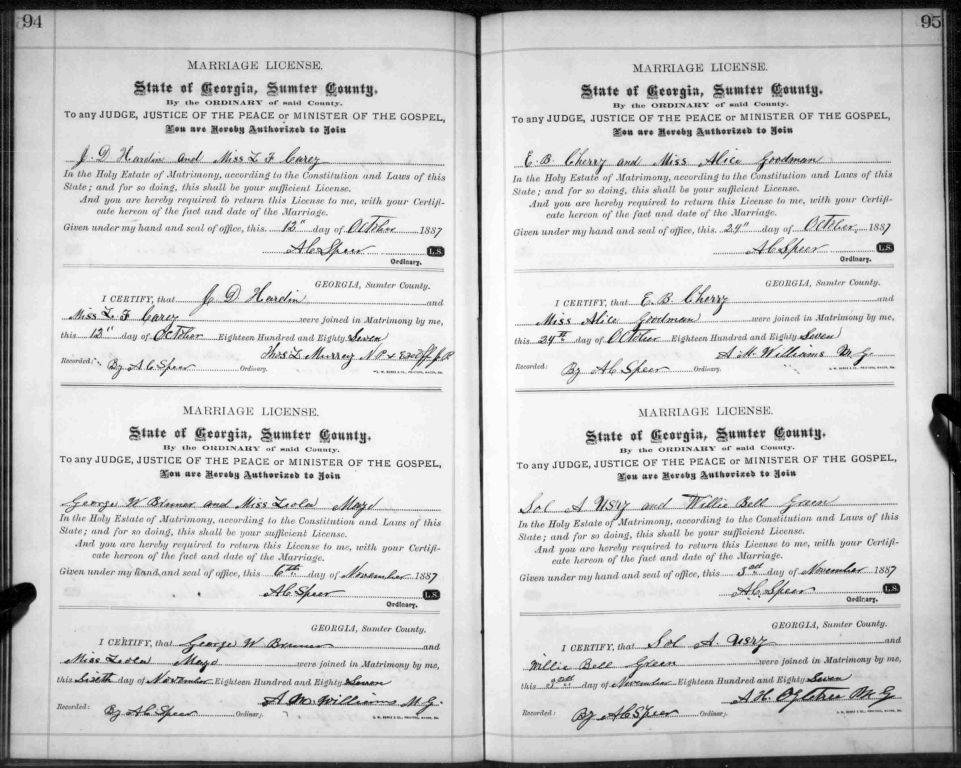 94
MARRIAGE LICENSE.
State of Georgia, Sumter County.
By the ORDINARY of said County.
To any JUDGE, JUSTICE OF THE PEACE or MINISTER OF THE GOSPEL,
You are Hereby Authorized to Join
J. D Hardin and Miss L F Carey
In the Holy Estate of Matrimony, according to the Constitution and Laws of this
State; and for so doing, this shall be your sufficient License.
And you are hereby required to return this License to me, with your Certifi-
cate hereon of the fact and date of the Marriage.
Given under my hand and seal of office, this 12" day of October 1887
A C Speer L.S.
Ordinary.
GEORGIA, Sumter County.
I CERTIFY, that J. D. Hardin and
Miss L. F Carey were joined in Matrimony by me,
this 12" day of October Eighteen Hundred and Eighty Seven
Thos L Murrey N P & Exoff J. P.
Recorded: By A C Speer Ordinary.
MARRIAGE LICENSE.
State of Georgia, Sumter County.
By the ORDINARY of said County.
To any JUDGE, JUSTICE OF THE PEACE or MINISTER OF THE GOSPEL,
You are Hereby Authorized to Join
George W and Miss Leola Mayo
In the Holy Estate of Matrimony, according to the Constitution and Laws of this
State; and for so doing, this shall be your sufficient License.
And you are hereby required to return this License to me, with your Certifi-
cate hereon of the fact and date of the Marriage.
Given under my hand and seal of office, this 6th day of November 1887
A C Speer L.S.
Ordinary.
GEORGIA, Sumter County.
I CERTIFY, that George W and
Miss Leola Mayo were joined in Matrimony by me,
this Sixth day of November Eighteen Hundred and Eighty Seven
A M Williams M. G.
Recorded: By A C Speer Ordinary.
95
MARRIAGE LICENSE.
State of Georgia, Sumter County.
By the ORDINARY of said County.
To any JUDGE, JUSTICE OF THE PEACE or MINISTER OF THE GOSPEL,
You are Hereby Authorized to Join
E. B. Cherry and Miss Alice Goodman
In the Holy Estate of Matrimony, according to the Constitution and Laws of this
State; and for so doing, this shall be your sufficient License.
And you are hereby required to return this License to me, with your Certifi-
cate hereon of the fact and date of the Marriage.
Given under my hand and seal of office, this 24" day of October, 1887
A C Speer L.S.
Ordinary.
GEORGIA, Sumter County.
I CERTIFY, that E. B. Cherry and
Miss Alice Goodman were joined in Matrimony by me,
this 24th day of October Eighteen Hundred and Eighty Seven
A. M. Williams M. G.
Recorded: By A C Speer Ordinary.
MARRIAGE LICENSE.
State of Georgia, Sumter County.
By the ORDINARY of said County.
To any JUDGE, JUSTICE OF THE PEACE or MINISTER OF THE GOSPEL,
You are Hereby Authorized to Join
Sol A Usry and Willie Bell Green
In the Holy Estate of Matrimony, according to the Constitution and Laws of this
State; and for so doing, this shall be your sufficient License.
And you are hereby required to return this License to me, with your Certifi-
cate hereon of the fact and date of the Marriage.
Given under my hand and seal of office, this 3rd day of November 1887
A C Speer L.S.
Ordinary.
GEORGIA, Sumter County.
I CERTIFY, that Sol A. Usry and
Willie Bell Green were joined in Matrimony by me,
this 3rd day of November Eighteen Hundred and Eighty Seven
A. H. Ogletree M. G
Recorded: By A C Speer Ordinary.